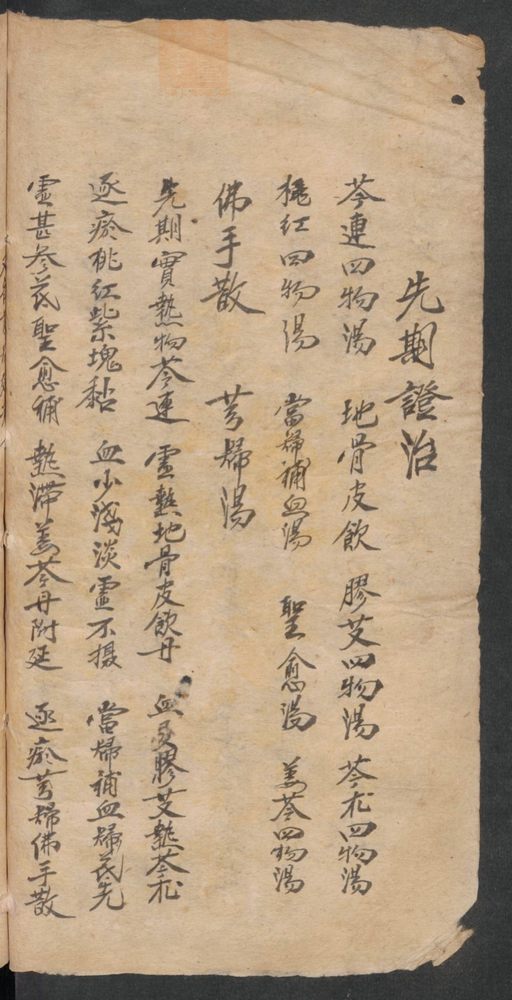 先期證治
芩連四物湯 地骨皮飲 膠艾四物湯 芩朮四物湯
桃紅四物湯 當歸補血湯 聖愈湯 姜芩四物湯
佛手散 芎歸湯
先期實熱物芩連 虛熱地骨皮飲丹 血多膠艾熱芩朮
逐瘀桃紅紫塊黏 血少淺淡虛不摄 當歸補血歸芪先
虛甚參芪聖愈補 熱滯姜芩丹附延 逐瘀芎歸佛手散